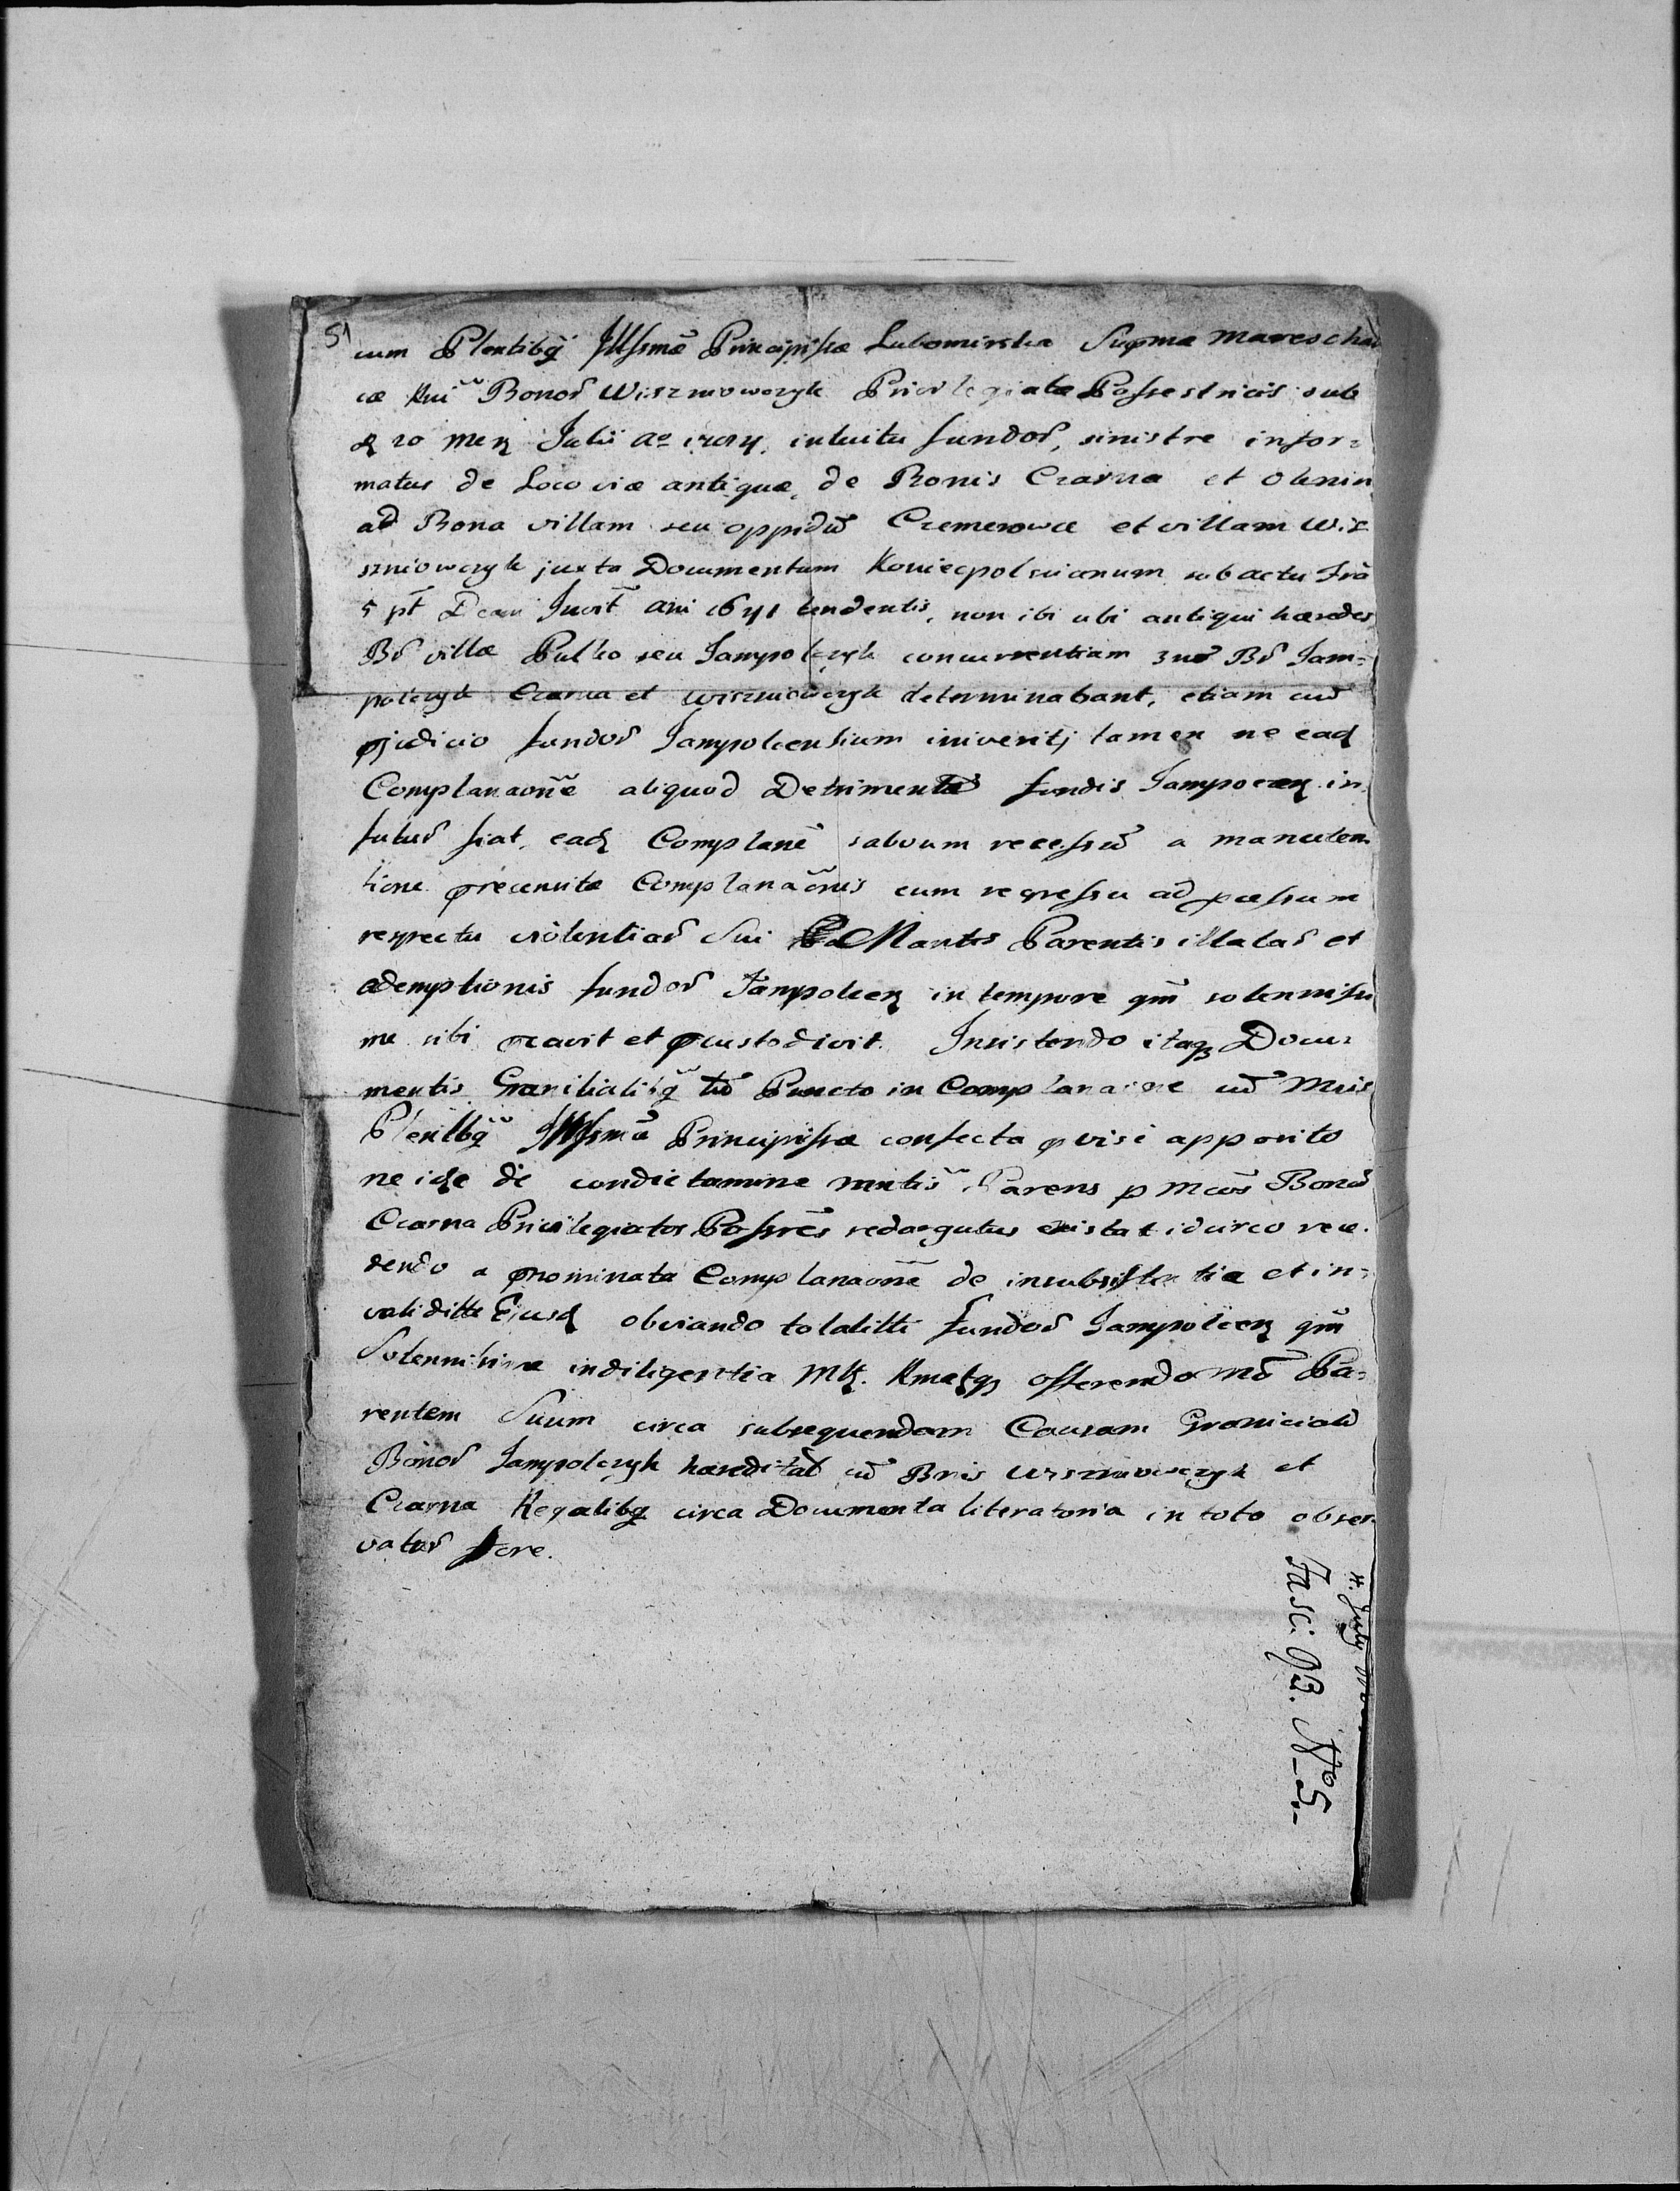 51
cum Plentibq Illsmæ Principissæ Lubomirska Supmæ Mareschal
cæ Rni Bonor Wiszniowczyk Privilegiatæ Possestricis sub
d 20 Men Julii Ao intuitu fundor, sinistre infor=
matus de Loco viæ antiquæ, de Bonis Czarna et Olenin
ad Bona villam seu oppidu Czemerowce et villam Wi
szniowczyk juxta Documentum Koniecpolscianum sub actu Fria
5 pt Dcam Invit Ani 1641 tendentis, non ibi ubi antiqui hæredes
Br villæ Pulko seu Jampolczyk concurrentiam 3um Br Jam=
polczyk Czarna et Wiszniowczyk determinabant, etiam cum
pjudicio fundor Jampolcensium iniverit, tamen ne ead
Complanaone aliquod Detrimentu fundis Jampolcen in
futur fiat, ead Complane salvum recessu a manuten
tione præcunitæ Complanaonis cum regressu ad pcessum
respectu violentiar Sui Mantis Parentis illatar et
ademptionis fundor Jampolcen in tempore qm solennissi
me sibi pcavit et pcustodivit. Insistendo itaq Docu=
mentis Granicialibq tu Puncto in Complanaone cu Mcis
Plentbq Illsmæ Principissæ confecta pvise apposito
ne idse de condictamine Parens p Mcos Bonor
Czarna Privilegiatos Possres redargutus existat idcirco rece=
dendo a pnominata Complanaone de insubsistentia et in=
validitte Ejusd obviando totalitti fundor Jampolcen qm
Solennissima indiligentia offerendo Pa=
rentem Suum circa subsequendam Causam Granicialu
Bonor Jampolczyk hæreditar cu Bnis Wiszniowczyk et
Czarna Regalibq circa Documenta literatoria in toto obser
vatur fore.
4. July
Fasc: 93. No 5.